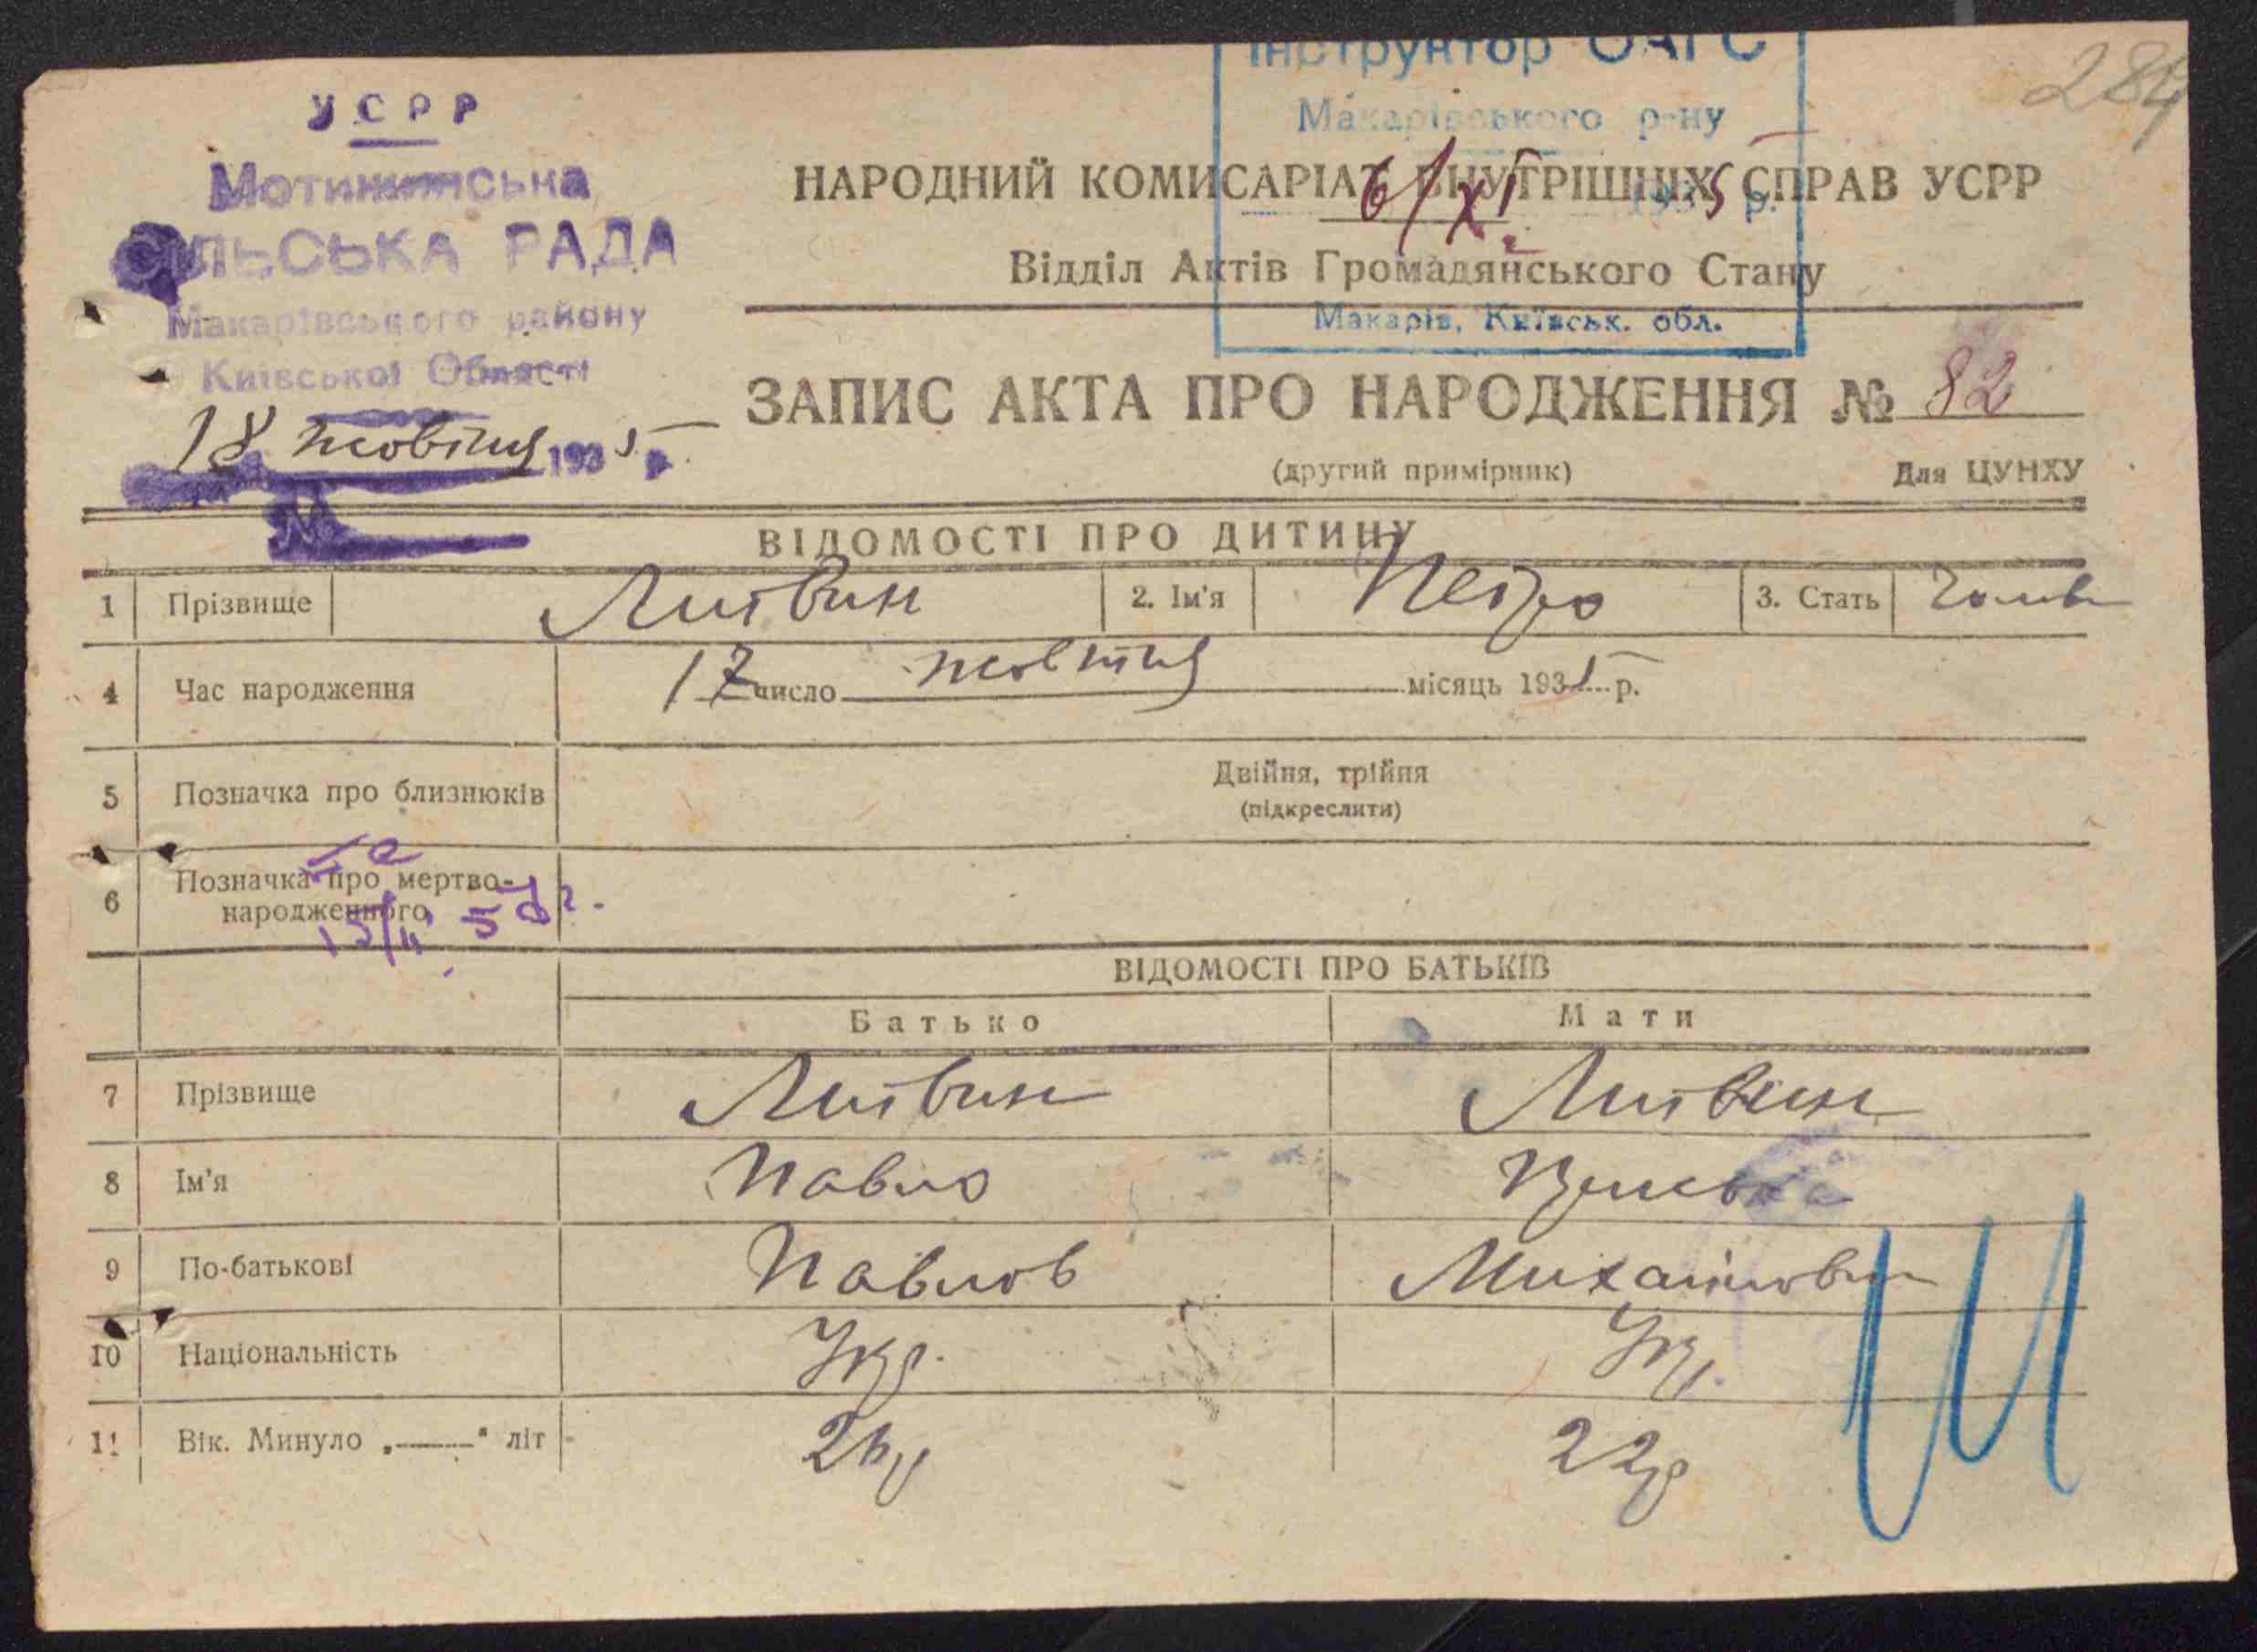 284
УСРР
Мотижинська
СІЛЬСЬКА РАДА
Макарівського району
Київської Області
18 жовтня 1935 р.
№
Інструктор ОАГС
Макарівського р-ну
6/XI 1935 р.
Макарів, Київськ. обл.
НАРОДНИЙ КОМИСАРІАТ ВНУТРІШНІХ СПРАВ УСРР
Відділ Актів Громадянського Стану
ЗАПИС АКТА ПРО НАРОДЖЕННЯ № 82
(другий примірник) Для ЦУНХУ
ВІДОМОСТІ ПРО ДИТИНУ
1 Прізвище Литвин 2. Ім'я Петро 3. Стать
4 Час народження 17 число жовтня місяць 1935 р.
5 Позначка про близнюків Двійня, трійня
(підкреслити)
6 Позначка про мертво-
народженного
15/II
ВІДОМОСТІ ПРО БАТЬКІВ
Батько Мати
7 Прізвище Литвин Литвин
8 Ім'я Павло
9 По-батькові Павлов
10 Національність Укр. Укр.
11 Вік. Минуло „——" літ 22р